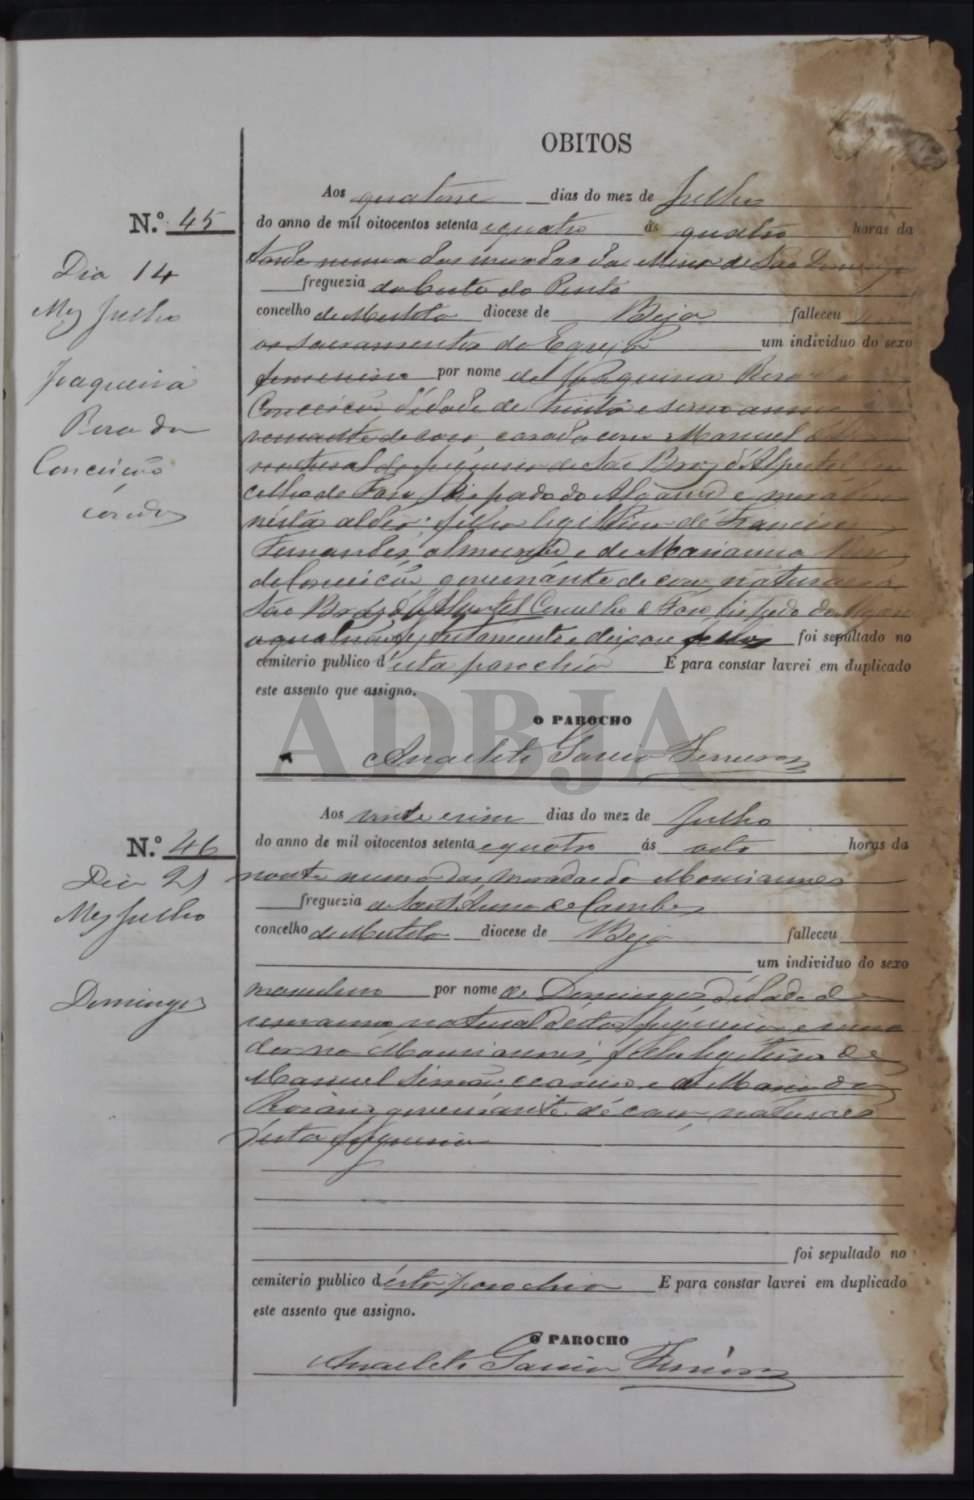 OBITOS
N.º 45
Dia 14
Mez Julho
Joaquina
Roza da
Conceição
Aos quatorze dias do mez de Julho
do anno de mil oitocentos setenta e quatro ás quatro horas da
tarde numa das moradas da Mina de São Domingos
freguezia do Corte do Pinto
concelho de Mertola diocese de Beja falleceu
os sacramentos da Egreja um individuo do sexo
femenino por nome de Joaquina Roza
Conceição d'idade de trinta e annos
de casa casada com Manuel
natural da freguesia de São Braz d'Alportel
celho de Faro Bispado do Algarve e
nesta aldeia filha legitima de Francisco
Fernandes almocreve e de Marianna Roza
da Conceição governante de casa naturaes
São Braz d'Alportel Concelho de Faro bispado do
a qual não fez testamento e deixou filhos foi sepultado no
cemiterio publico d'esta parochia E para constar lavrei em duplicado
este assento que assigno.
O PAROCHO
Anacleto Garcia
N.º 46
Dia 21
Mez Julho
Domingos
Aos vinte e um dias do mez de Julho
do anno de mil oitocentos setenta e quatro ás oito horas da
noute numa das moradas do
freguezia de Sant'Anna de Cambas
concelho de Mertola diocese de Beja falleceu
um individuo do sexo
masculino por nome de Domingos d'idade de
natural d'esta freguesia e mora
dor no filho legitimo de
Manuel Simão e de Maria da
governante de casa, naturaes
d'esta freguesia
foi sepultado no
cemiterio publico d'esta parochia E para constar lavrei em duplicado
este assento que assigno.
O PAROCHO
Anacleto Garcia
ADBJA